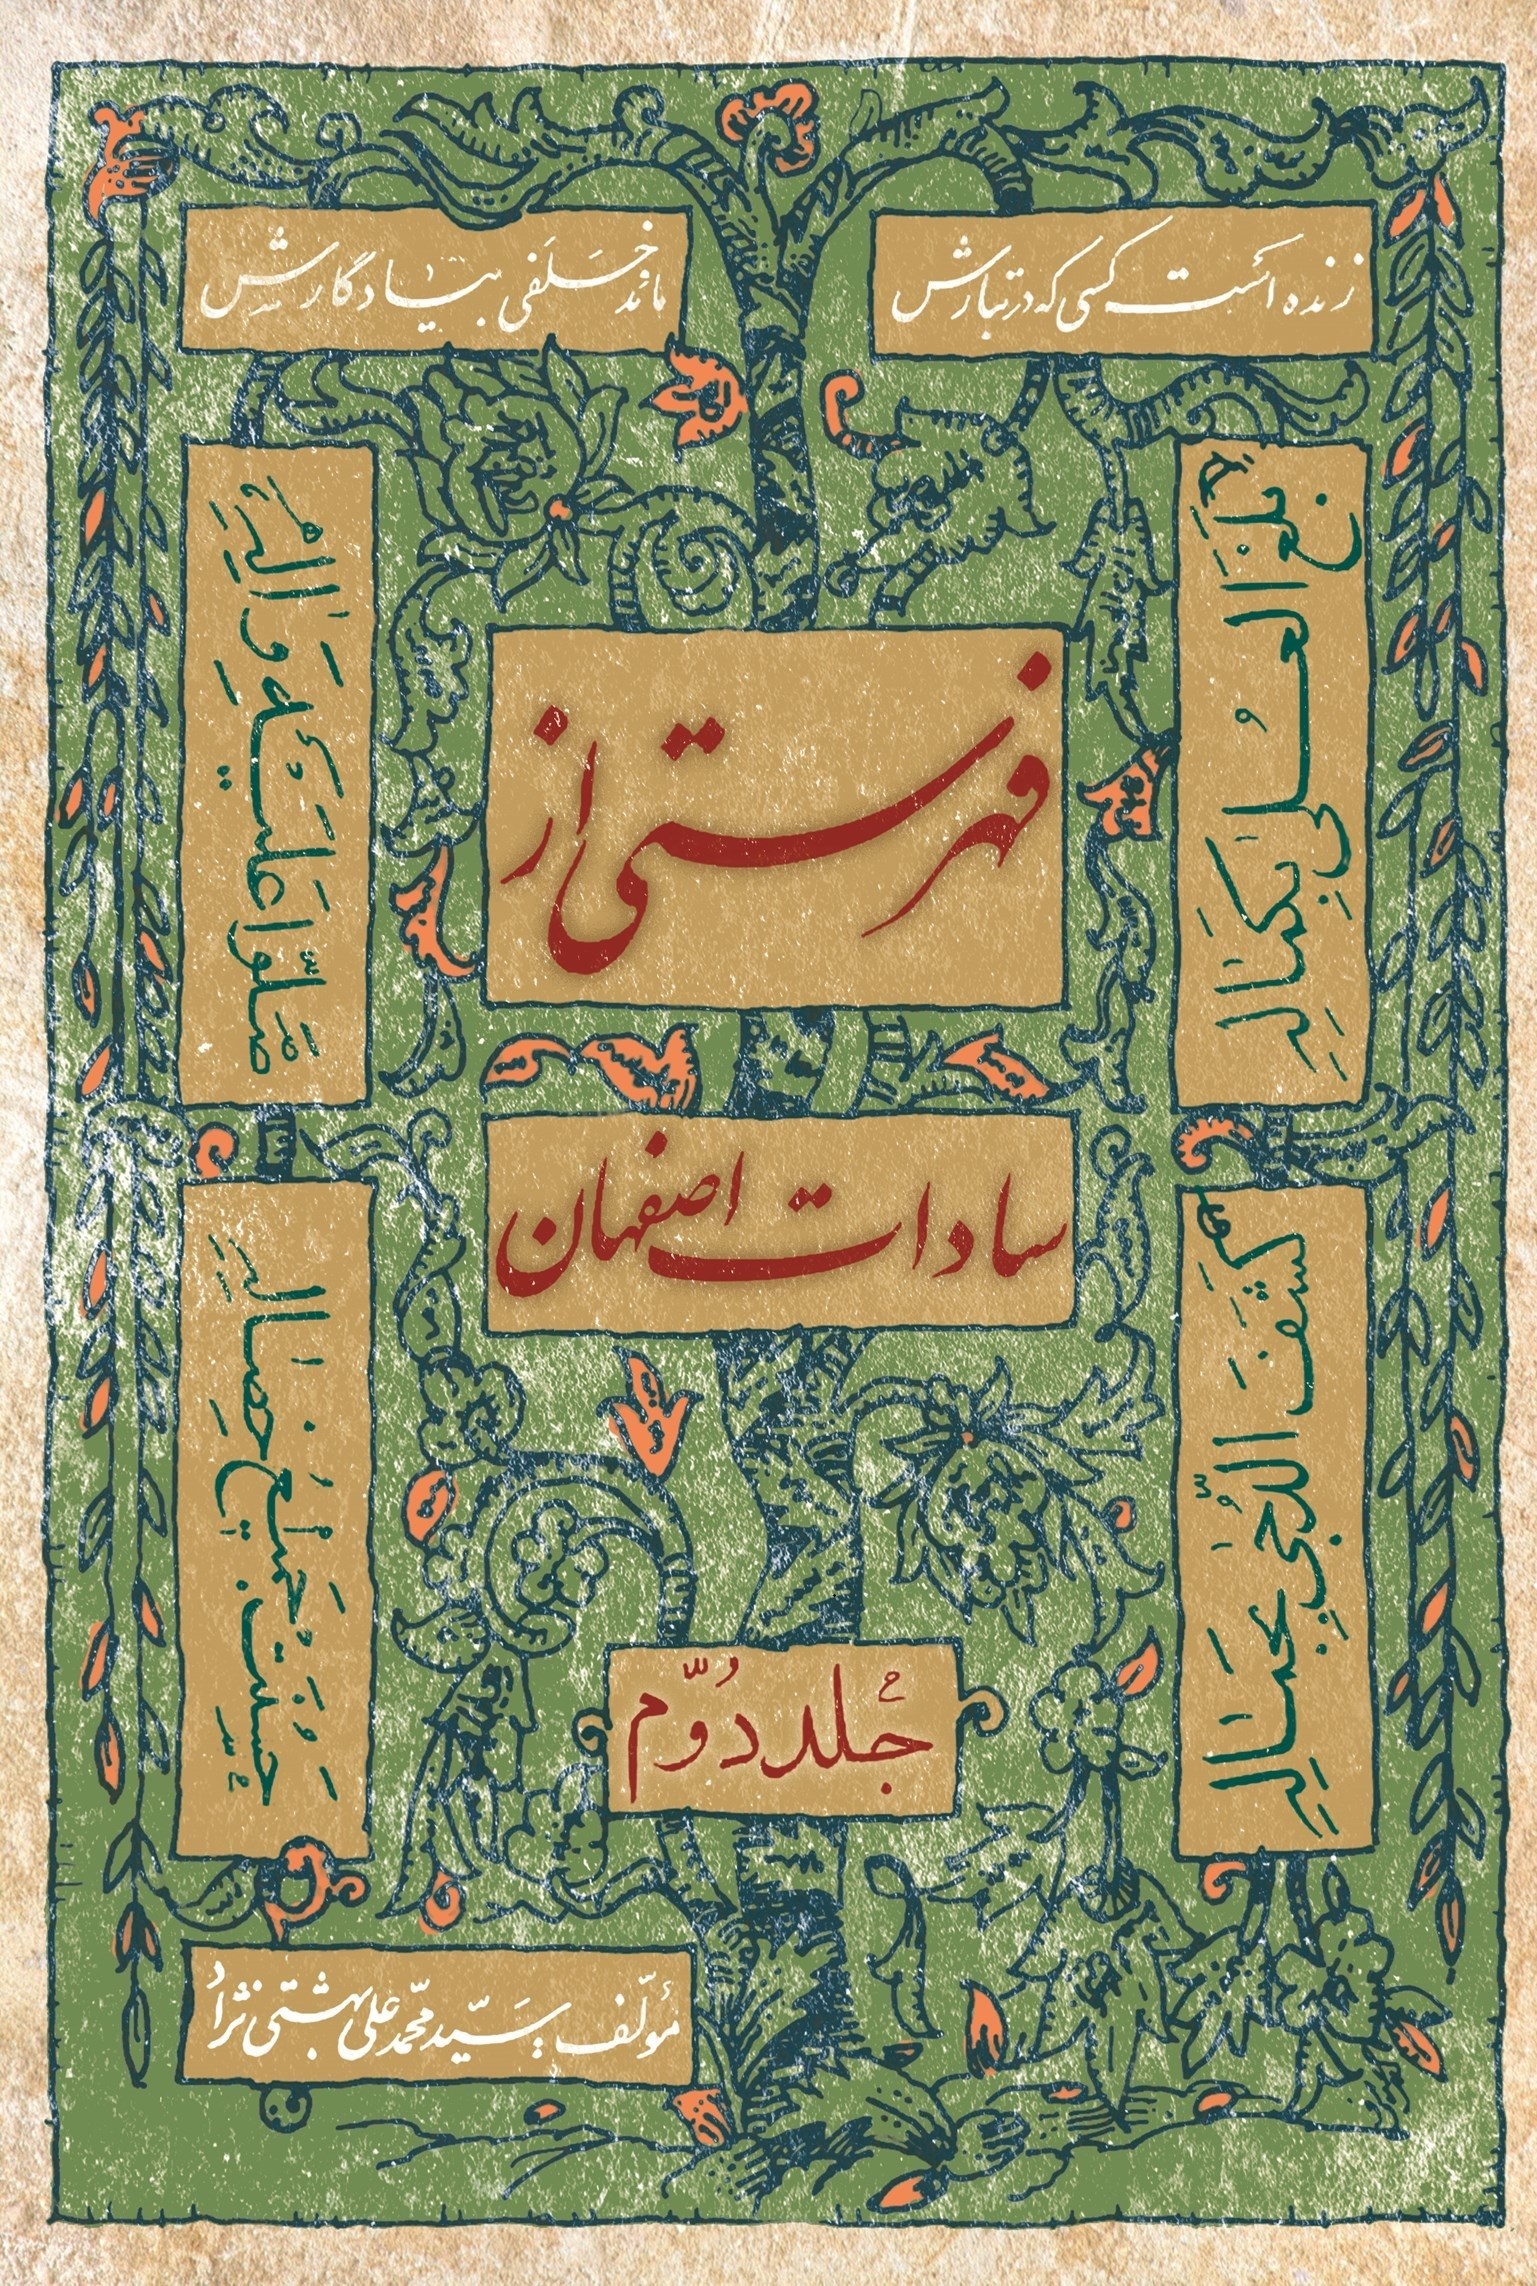 زنده است کسی که در تبارش
ماند خلفی بیادگارش
بَلَغَ العُلیٰ بِکَمالِهِ
کَشَفَ الدُّجیٰ بِجَمالِهِ
حَسُنَت جَمیعُ خِصالِهِ
صَلّوا عَلَیهِ وَ آلِهِ
فهرستی از
سادات اصفهان
جلد دوّم
مؤلّف: سیّد محمّد علی بهشتی نژاد